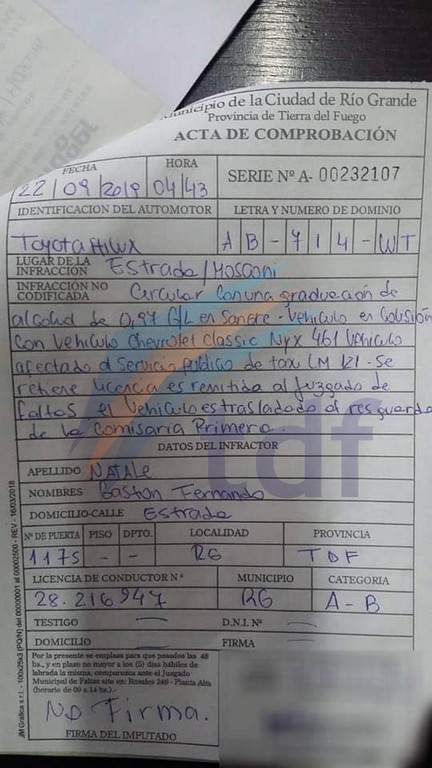 Municipio de la Ciudad de Río Grande
Provincia de Tierra del Fuego
ACTA DE COMPROBACIÓN
FECHA HORA
22/09/2019 04/43 SERIE Nº A- 00232107
IDENTIFICACION DEL AUTOMOTOR LETRA Y NUMERO DE DOMINIO
Toyota Hilux AB-714-WT
LUGAR DE LA INFRACCIÓN Estrada/Mosconi
INFRACCIÓN NO CODIFICADA Circular con una graduación de
alcohol de 0,97 G/L en Sangre - Vehiculo en Colisión
con Vehiculo Chevrolet Classic Nyx 461 Vehiculo
afectado al Servicio Público de taxi LM 121 - Se
retiene licencia es remitida al Juzgado de
faltas el Vehiculo es trasladado al resguardo
de la Comisaria Primera.
tdf
DATOS DEL INFRACTOR
APELLIDO NATALE
NOMBRES Gaston Fernando
DOMICILIO-CALLE Estrada
Nº DE PUERTA PISO DPTO. LOCALIDAD PROVINCIA
1175 - - RG TDF
LICENCIA DE CONDUCTOR Nº MUNICIPIO CATEGORIA
28.216.947 RG A-B
TESTIGO D.N.I. Nº
DOMICILIO FIRMA
Por la presente se emplaza para que pasadas las 48
hs., y en plazo no mayor a los (5) días hábiles de
labrada la misma, comparezca ante el Juzgado
Municipal de Faltas sito en: Rosales 249 - Planta Alta
(horario de 09 a 14 hs.)-
No Firma.
FIRMA DEL IMPUTADO